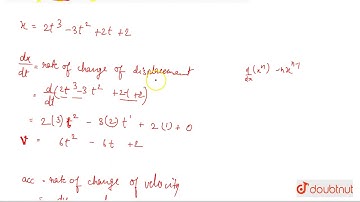 x = 2t³ -3t² +2t +2
dx/dt = rate of change of displacement
d/dx (xⁿ) = nxⁿ⁻¹
= d/dt (2t³ -3t² +2t +2)
= 2(3)t² - 3(2)t' + 2(1) +0
v = 6t² - 6t +2
acc = rate of change of velocity
doubtnut